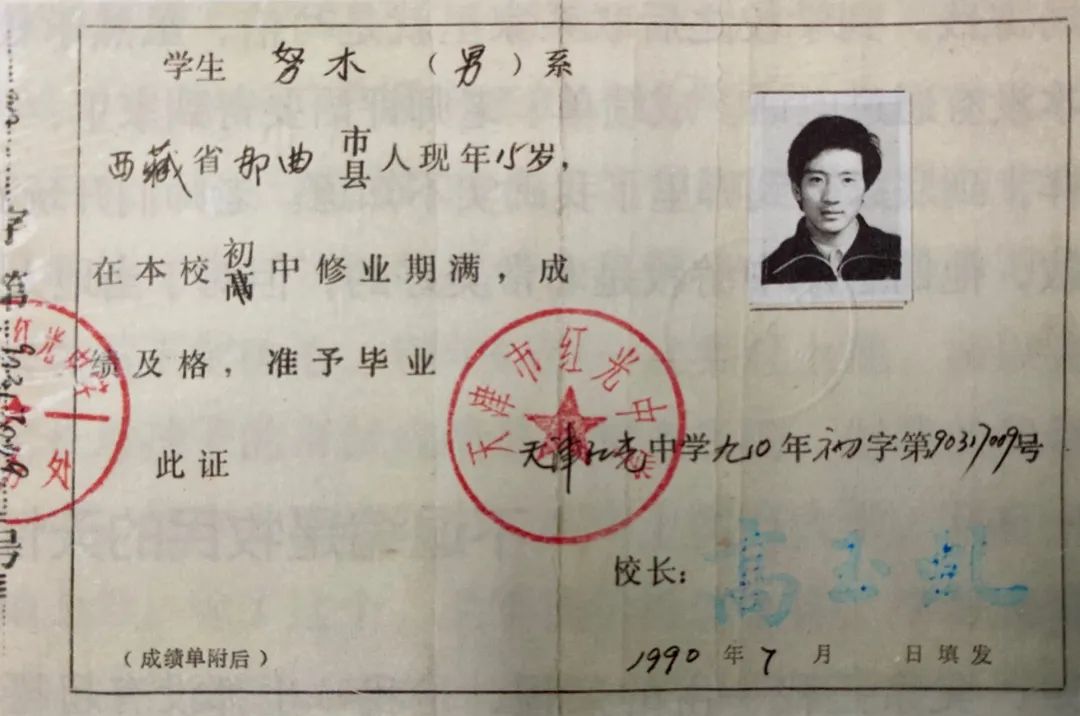 学生 努木 (男) 系
西藏省那曲市县人现年15岁,
在本校初中修业期满,成
绩及格,准予毕业
此证
天津红光中学九〇年初字第90317009号
校长: 高玉虬
(成绩单附后)
1990年7月 日填发
天津市红光中学
红光
处
字第
号